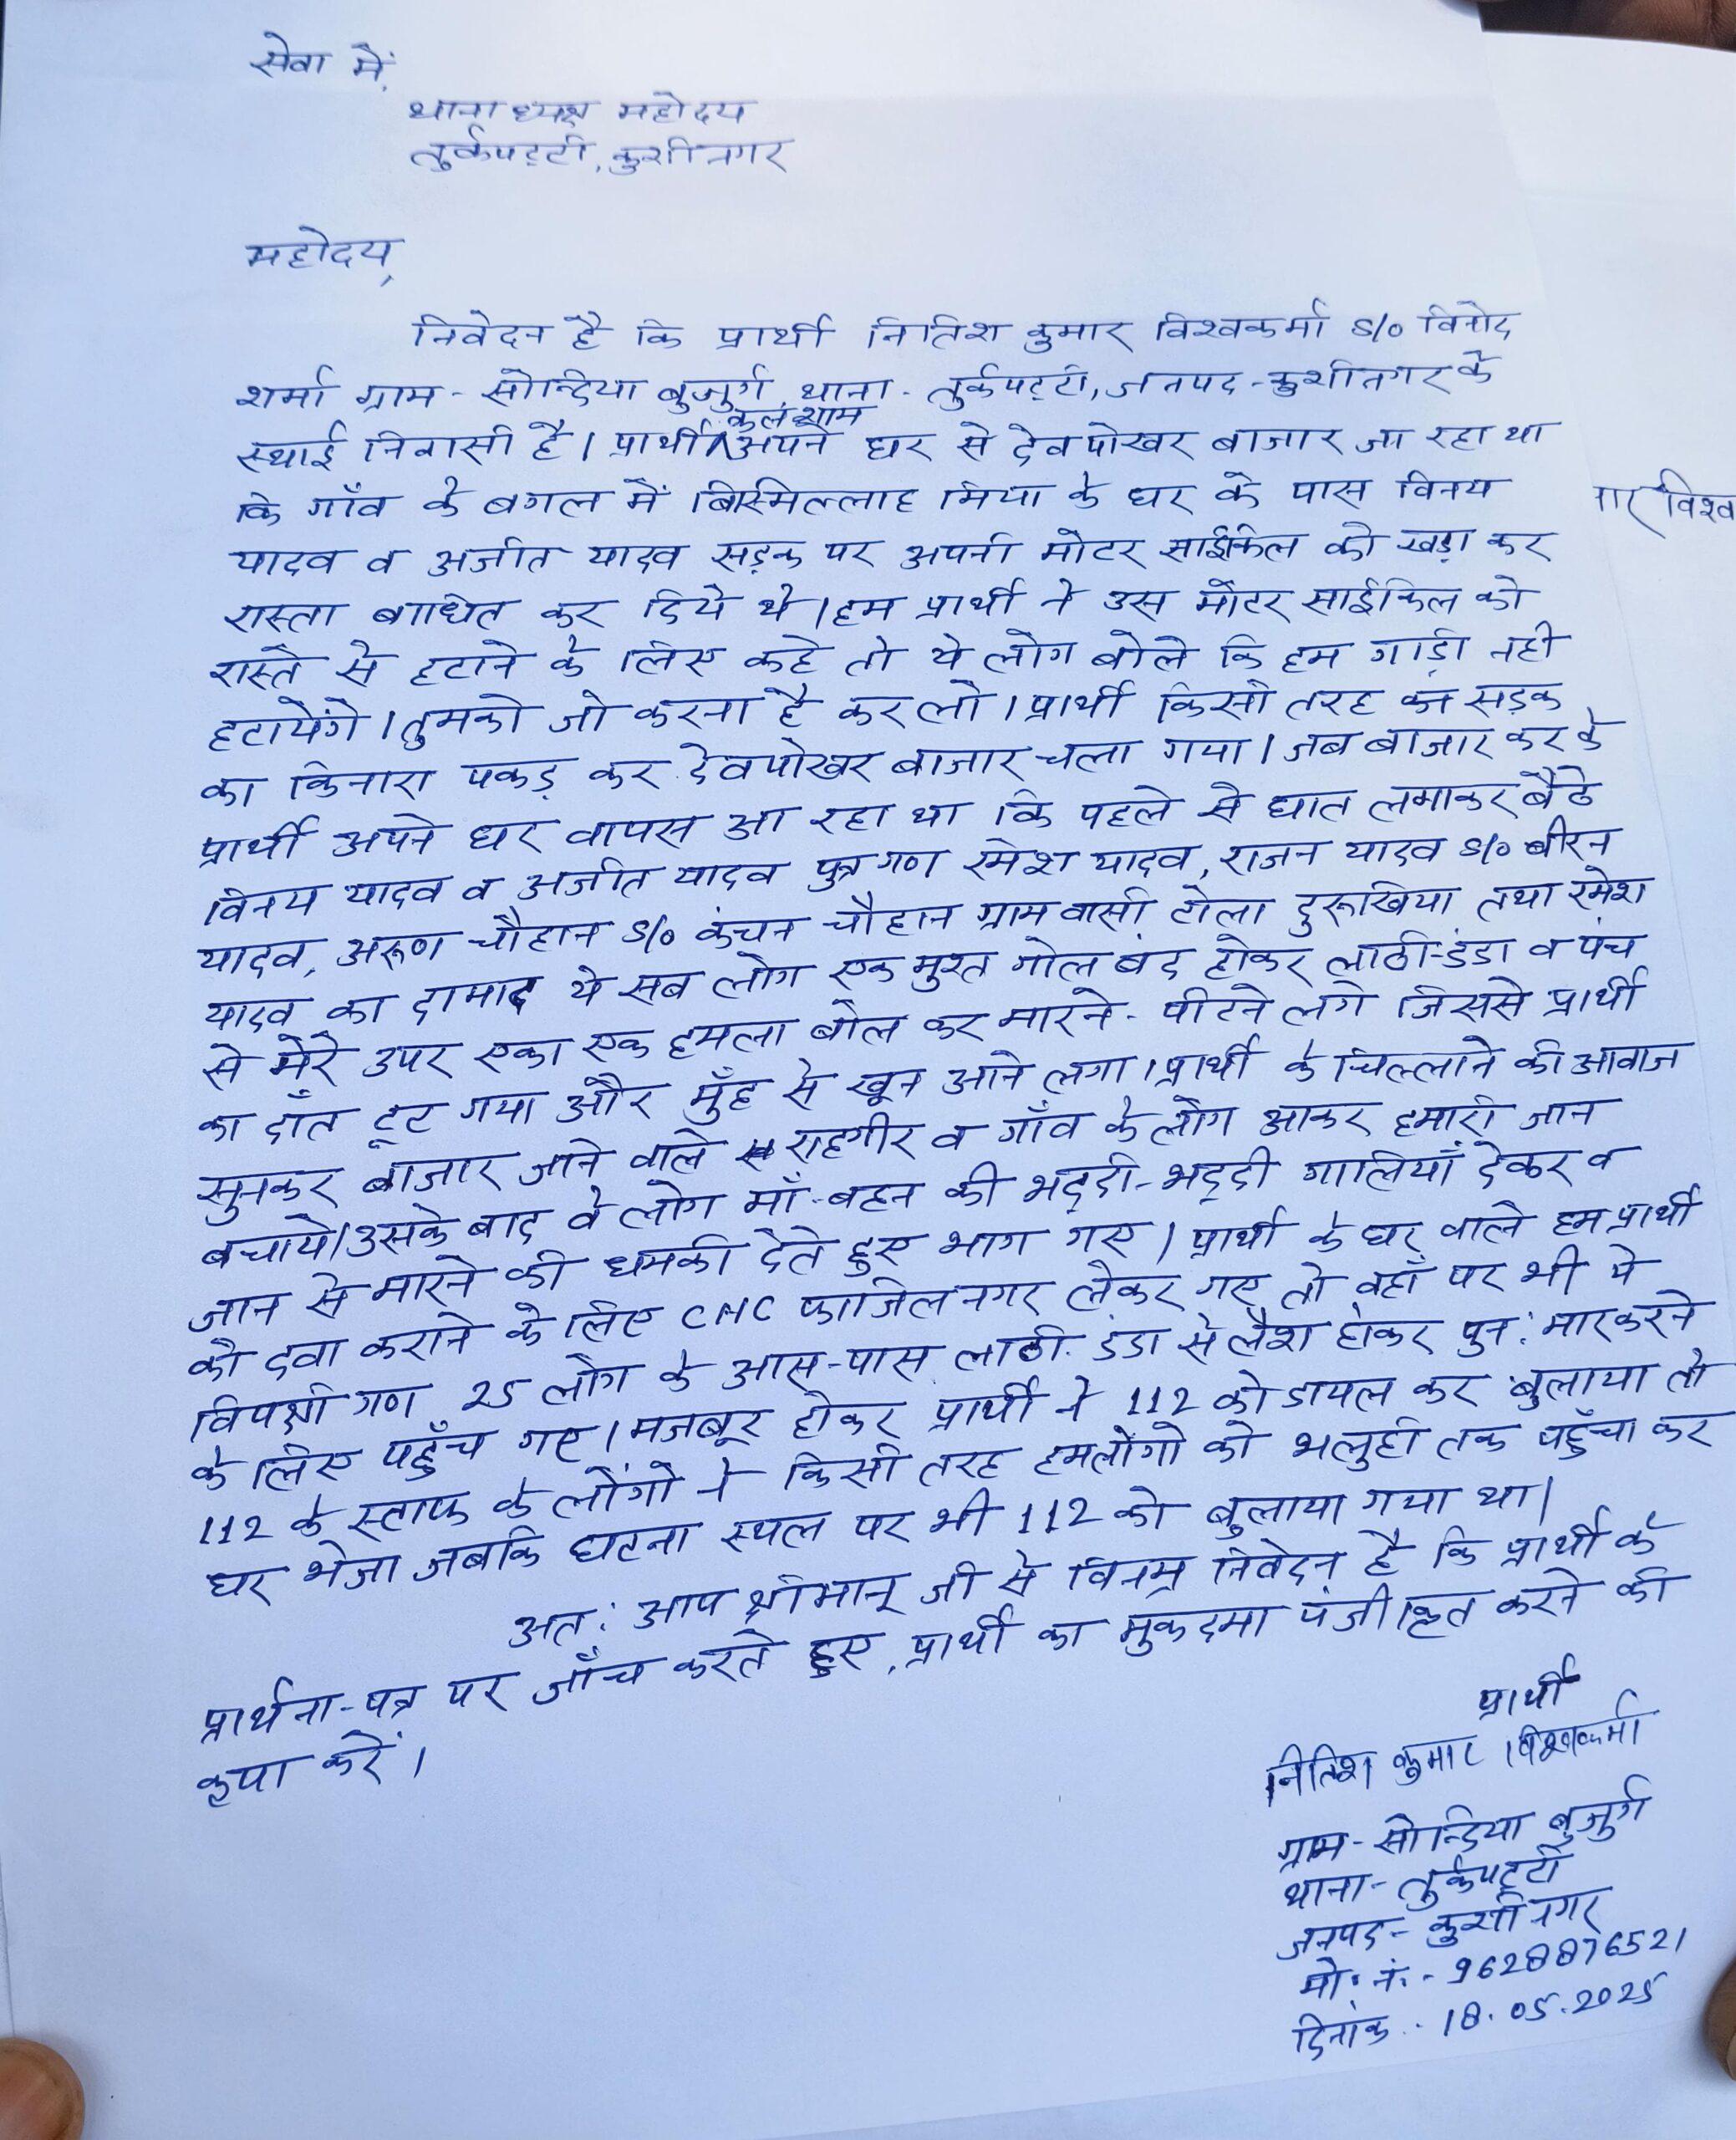 सेवा में,
थानाध्यक्ष महोदय
तुर्कपट्टी, कुशीनगर
महोदय,
निवेदन है कि प्रार्थी नितिश कुमार विश्वकर्मा S/o विनोद
शर्मा ग्राम - सोन्दिया बुजुर्ग, थाना - तुर्कपट्टी, जनपद - कुशीनगर के
कल शाम
स्थाई निवासी है। प्रार्थी अपने घर से देवपोखर बाजार जा रहा था
कि गाँव के बगल में बिस्मिल्लाह मिया के घर के पास विनय
यादव व अजीत यादव सड़क पर अपनी मोटर साईकिल को खड़ा कर
रास्ता बाधित कर दिये थे। हम प्रार्थी ने उस मोटर साईकिल को
रास्ते से हटाने के लिए कहे तो ये लोग बोले कि हम गाड़ी नही
हटायेंगे। तुमको जो करना है कर लो। प्रार्थी किसी तरह सड़क
का किनारा पकड़ कर देवपोखर बाजार चला गया। जब बाजार कर के
प्रार्थी अपने घर वापस आ रहा था कि पहले से घात लगाकर बैठे
विनय यादव व अजीत यादव पुत्रगण रमेश यादव, राजन यादव S/o बीरन
यादव, अरूण चौहान S/o कंचन चौहान ग्रामवासी टोला दुरूखिया तथा रमेश
यादव का दामाद ये सब लोग एक मुश्त गोल बंद होकर लाठी-डंडा व पंच
से मेरे उपर एका एक हमला बोल कर मारने - पीटने लगे जिससे प्रार्थी
का दाँत टूट गया और मुँह से खून आने लगा। प्रार्थी के चिल्लाने की आवाज
सुनकर बाजार जाने वाले राहगीर व गाँव के लोग आकर हमारी जान
बचाये। उसके बाद वे लोग माँ-बहन की भद्दी-भद्दी गालियाँ देकर व
जान से मारने की धमकी देते हुए भाग गए। प्रार्थी के घर वाले हम प्रार्थी
को दवा कराने के लिए CHC फाजिलनगर लेकर गए तो वहाँ पर भी ये
विपक्षी गण 25 लोग के आस-पास लाठी-डंडा से लैश होकर पुन: मार करने
के लिए पहुँच गए। मजबूर होकर प्रार्थी ने 112 को डायल कर बुलाया तो
112 के स्टाफ के लोंगो ने किसी तरह हमलोगो को भलुही तक पहुँचा कर
घर भेजा जबकि घटना स्थल पर भी 112 को बुलाया गया था।
अत: आप श्रीमान् जी से विनम्र निवेदन है कि प्रार्थी के
प्रार्थना-पत्र पर जाँच करते हुए, प्रार्थी का मुकदमा पंजीकृत करने की
कृपा करें।
प्रार्थी
नितिश कुमार विश्वकर्मा
ग्राम - सोन्दिया बुजुर्ग
थाना - तुर्कपट्टी
जनपद - कुशीनगर
मो. नं. - 9628876521
दिनांक - 18.05.2025